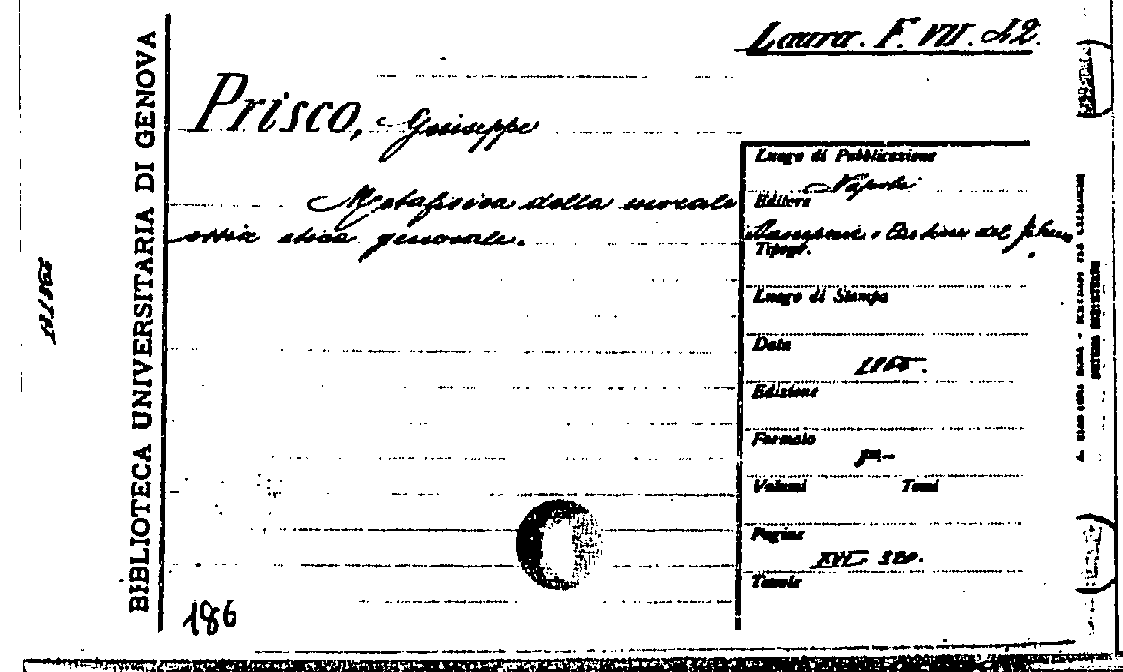 Laura. F. VII. 42.
BIBLIOTECA UNIVERSITARIA DI GENOVA
Prisco, Giuseppe
Metafisica della morale
ossia etica generale.
Luogo di Pubblicazione
Napoli
Editore
Tipogr.
Luogo di Stampa
Data
1865.
Edizione
Formato
Volumi Tomi
Pagine
XVI- 320.
Tavole
186